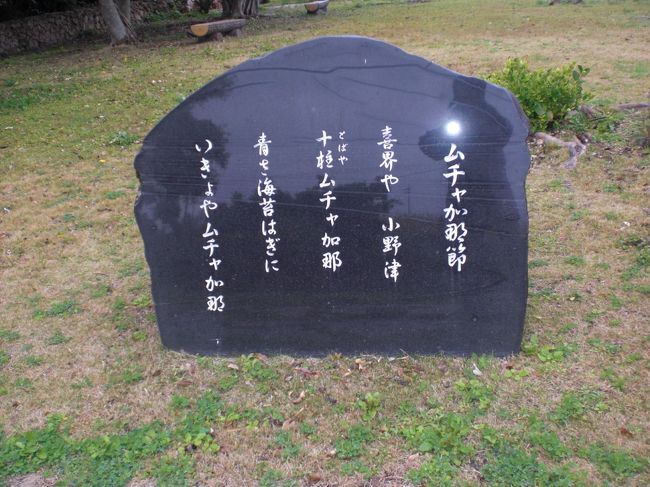 ムチャ加那節
喜界や 小野津
十柱ムチャ加那
とばや
青さ海苔はぎに
いきょやムチャ加那